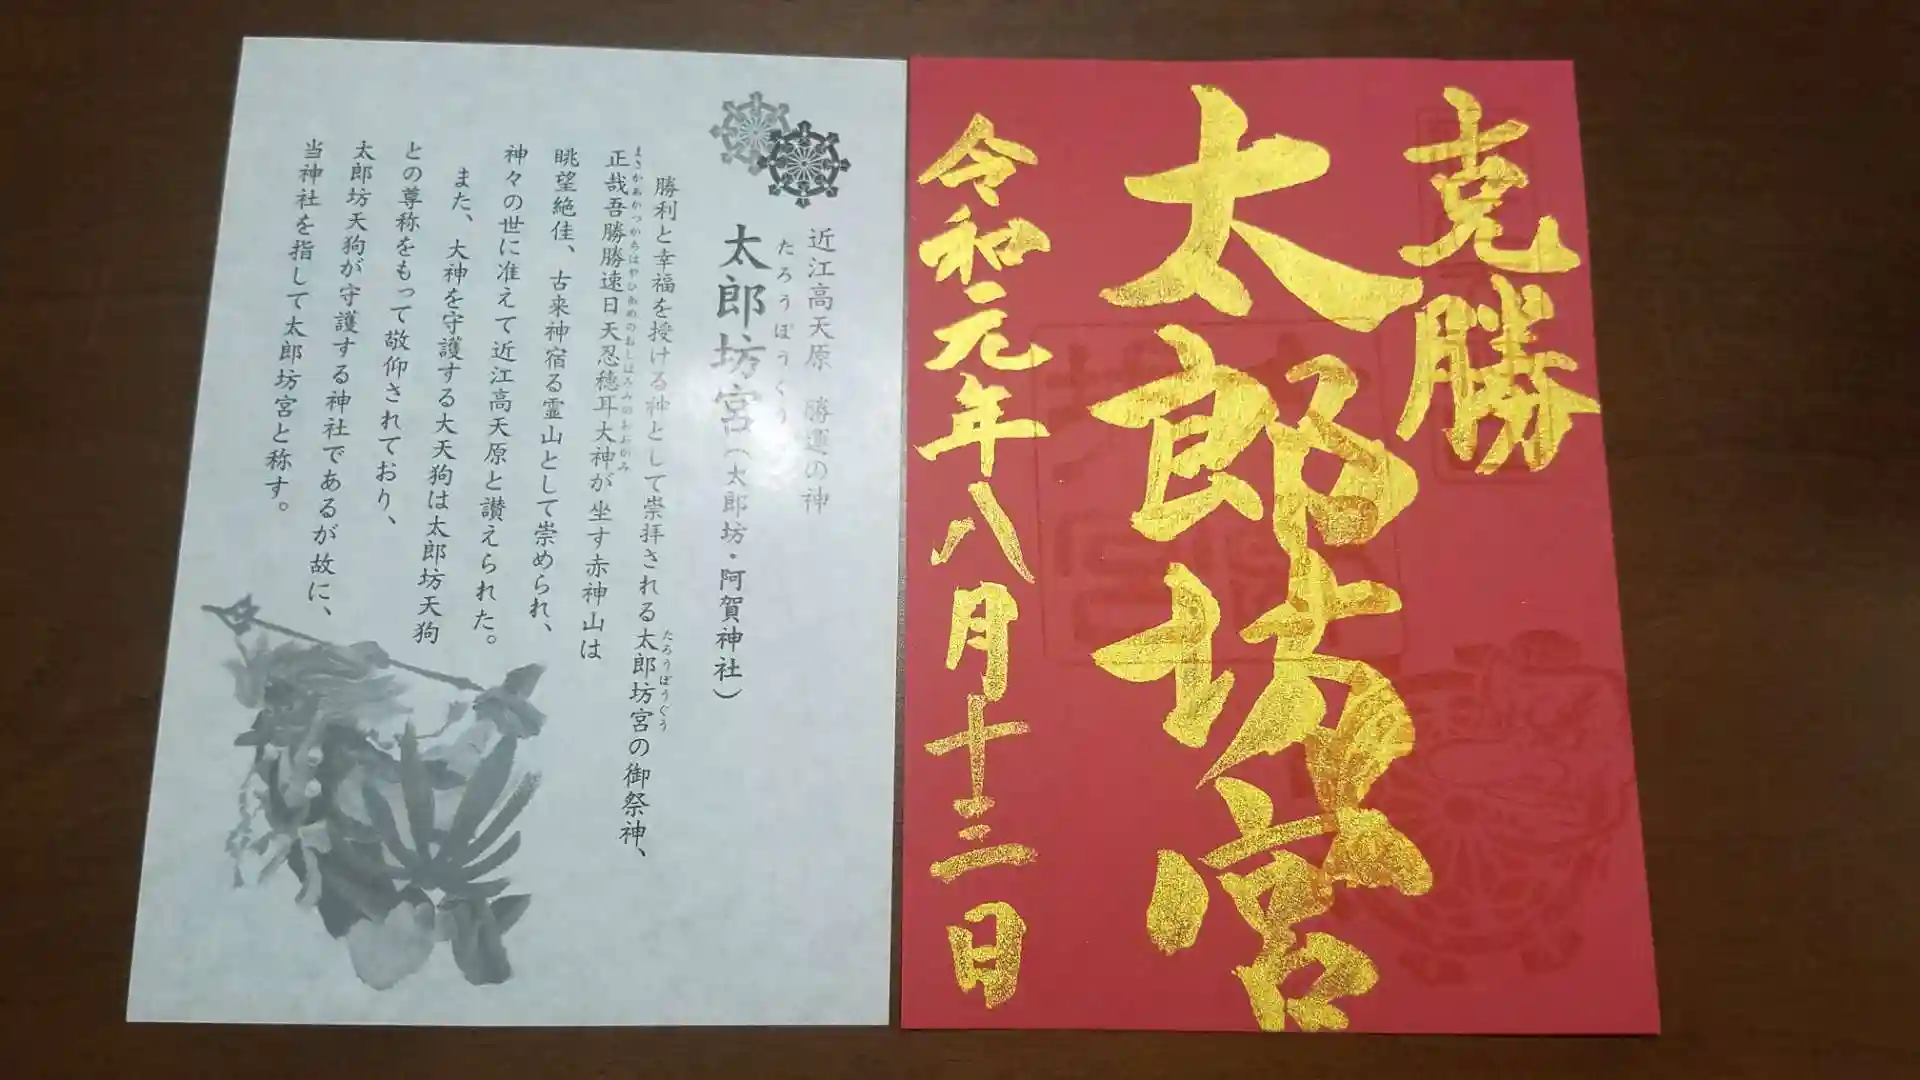 克勝
太郎坊宮
令和元年八月十三日
近江高天原 勝運の神
たろうぼうぐう
太郎坊宮(太郎坊・阿賀神社)
勝利と幸福を授ける神として崇拝される太郎坊宮の御祭神、
たろうぼうぐう
まさかあかつかちはやひあめのおしほみみのおおかみ
正哉吾勝勝速日天忍穂耳大神が坐す赤神山は
眺望絶佳、古来神宿る霊山として崇められ、
神々の世に准えて近江高天原と讃えられた。
また、大神を守護する大天狗は太郎坊天狗
との尊称をもって敬仰されており、
太郎坊天狗が守護する神社であるが故に、
当神社を指して太郎坊宮と称す。